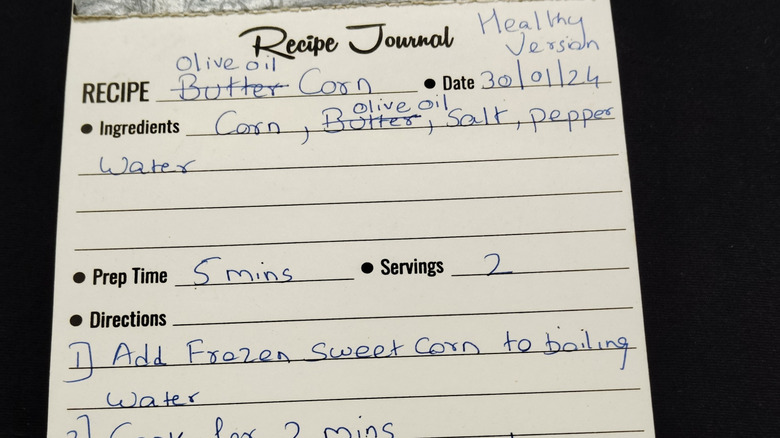 Recipe Journal
Healthy
Version
Olive oil
RECIPE Butter Corn • Date 30/01/24
olive oil
• Ingredients Corn, Butter, Salt, pepper
Water
• Prep Time 5 mins • Servings 2
• Directions
1] Add Frozen Sweet Corn to boiling
Water
2] Cook for 2 mins